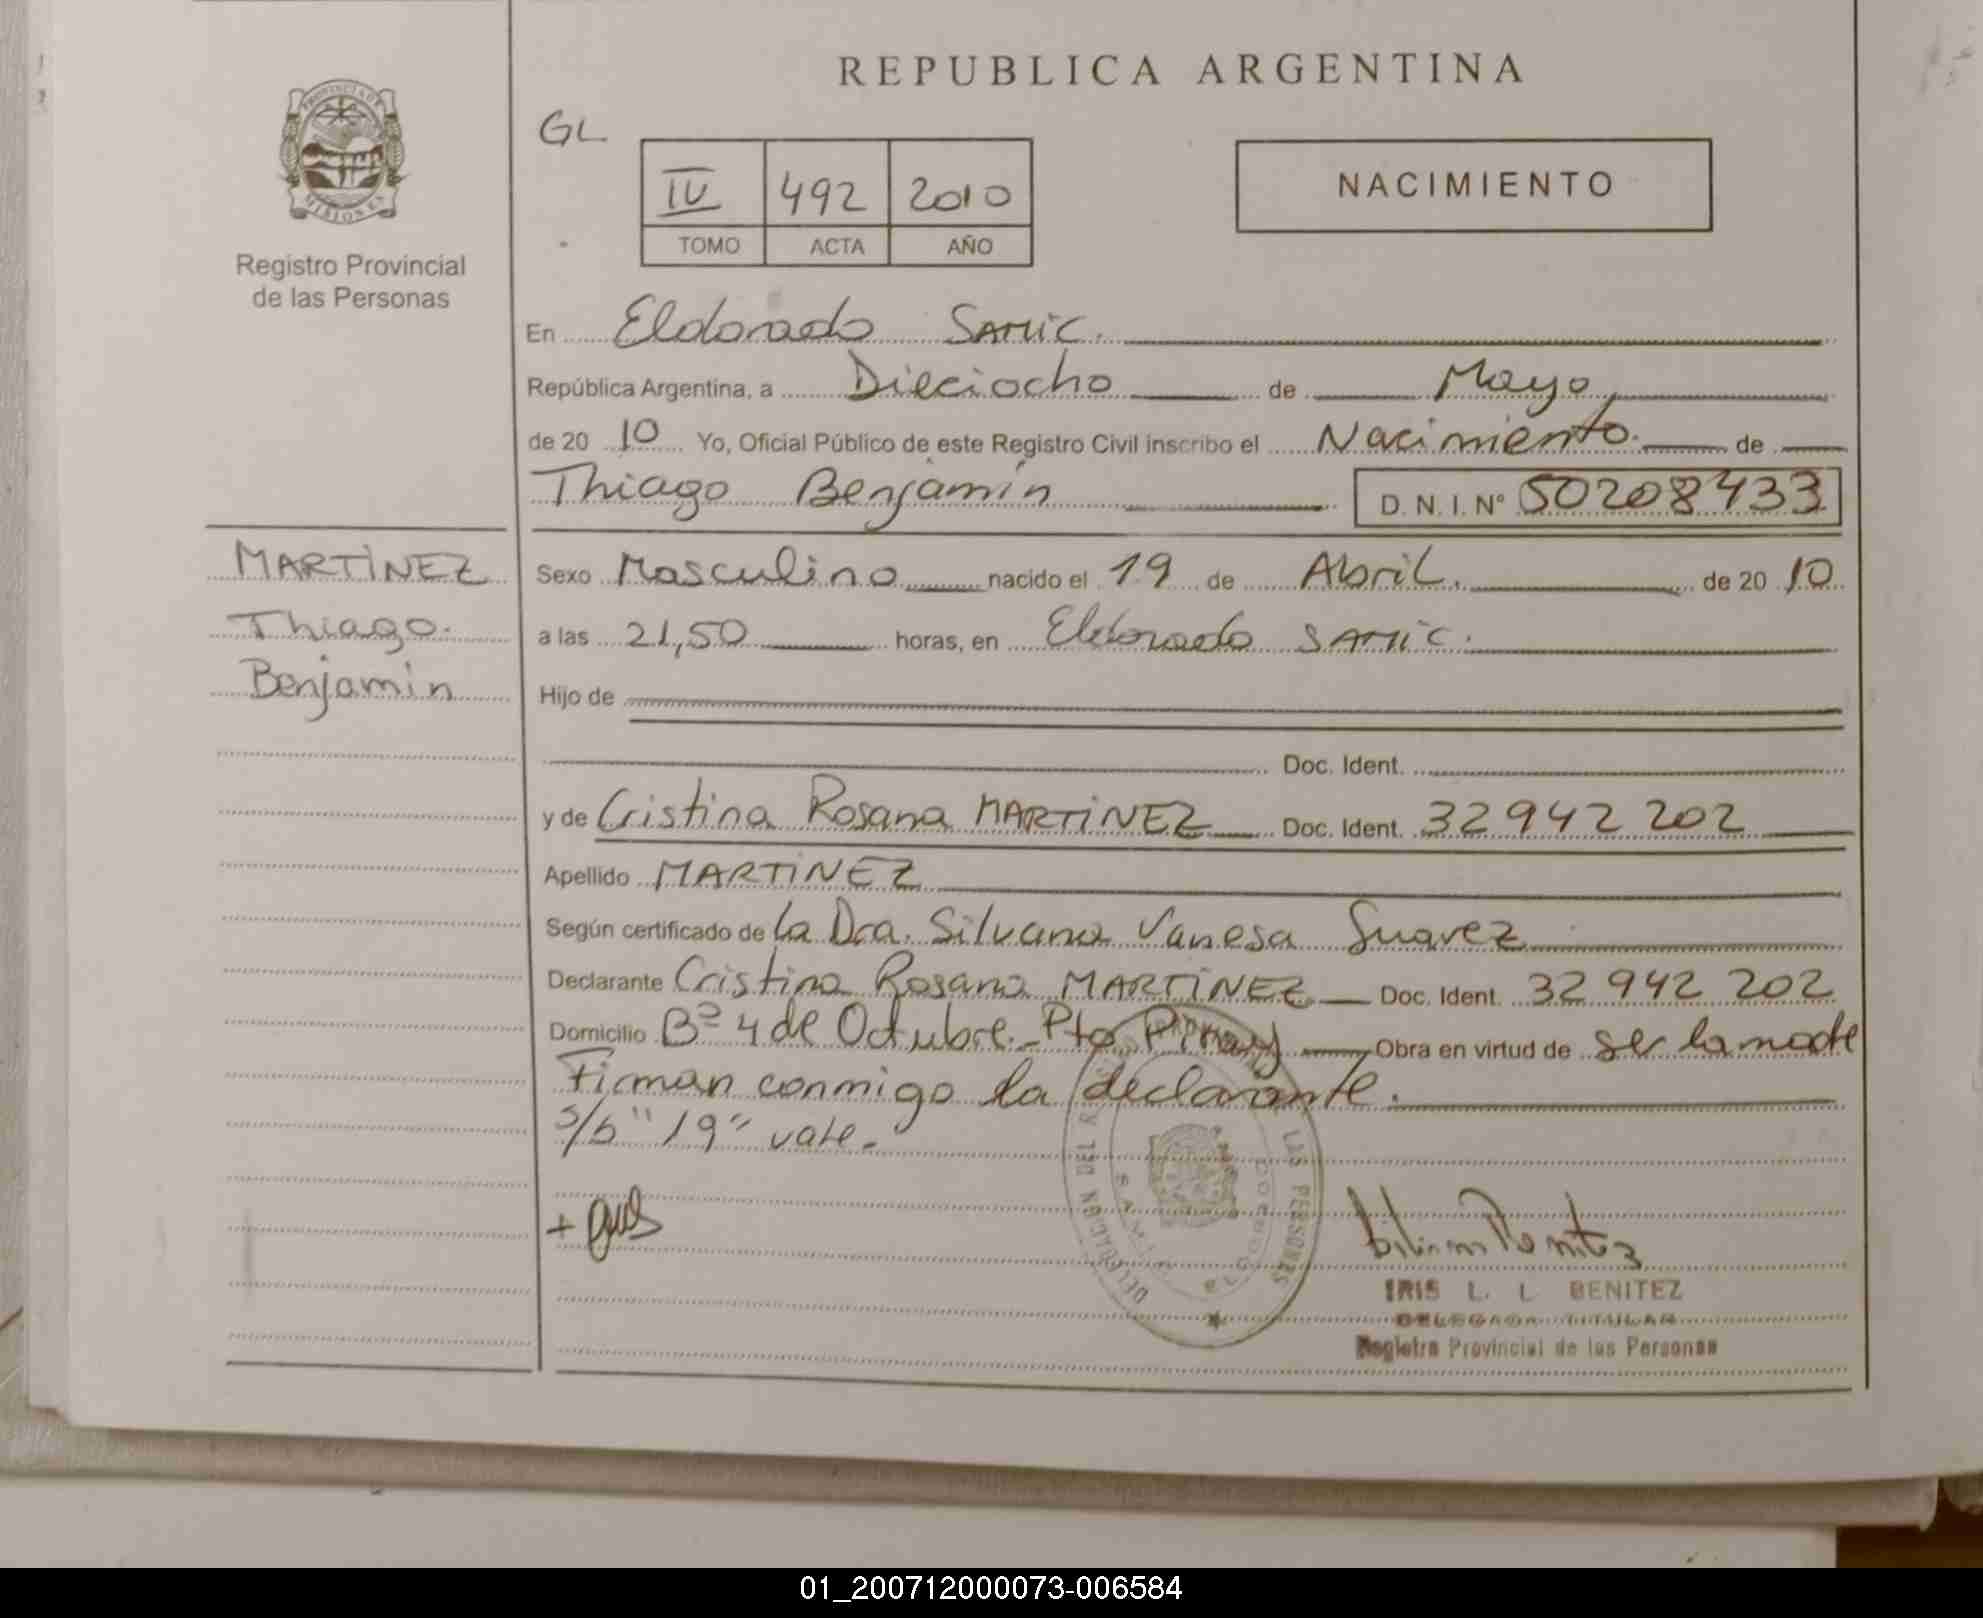 REPUBLICA ARGENTINA
PROVINCIA DE
MISIONES
Registro Provincial
de las Personas
GL
IV 492 2010
TOMO ACTA AÑO
NACIMIENTO
En Eldorado SAMIC.
República Argentina, a Dieciocho de Mayo
de 20 10 Yo, Oficial Público de este Registro Civil inscribo el Nacimiento. de
Thiago Benjamín D.N.I. Nº 50208433
MARTÍNEZ
Thiago.
Benjamín
Sexo Masculino nacido el 19 de Abril. de 20 10
a las 21,50 horas, en Eldorado SAMIC.
Hijo de
Doc. Ident.
y de Cristina Rosana MARTÍNEZ Doc. Ident. 32 942 202
Apellido MARTÍNEZ
Según certificado de la Dra. Silvana Vanesa Suarez
Declarante Cristina Rosana MARTÍNEZ Doc. Ident. 32 942 202
Domicilio Bº 4 de Octubre - Pto Piray Obra en virtud de ser la madre
Firman conmigo la declarante.
s/b "19" vale.-
DELEGACION DEL Y LAS PERSONAS
ELDORADO
IRIS L. L. BENITEZ
DELEGADA TITULAR
Registro Provincial de las Personas
01_200712000073-006584